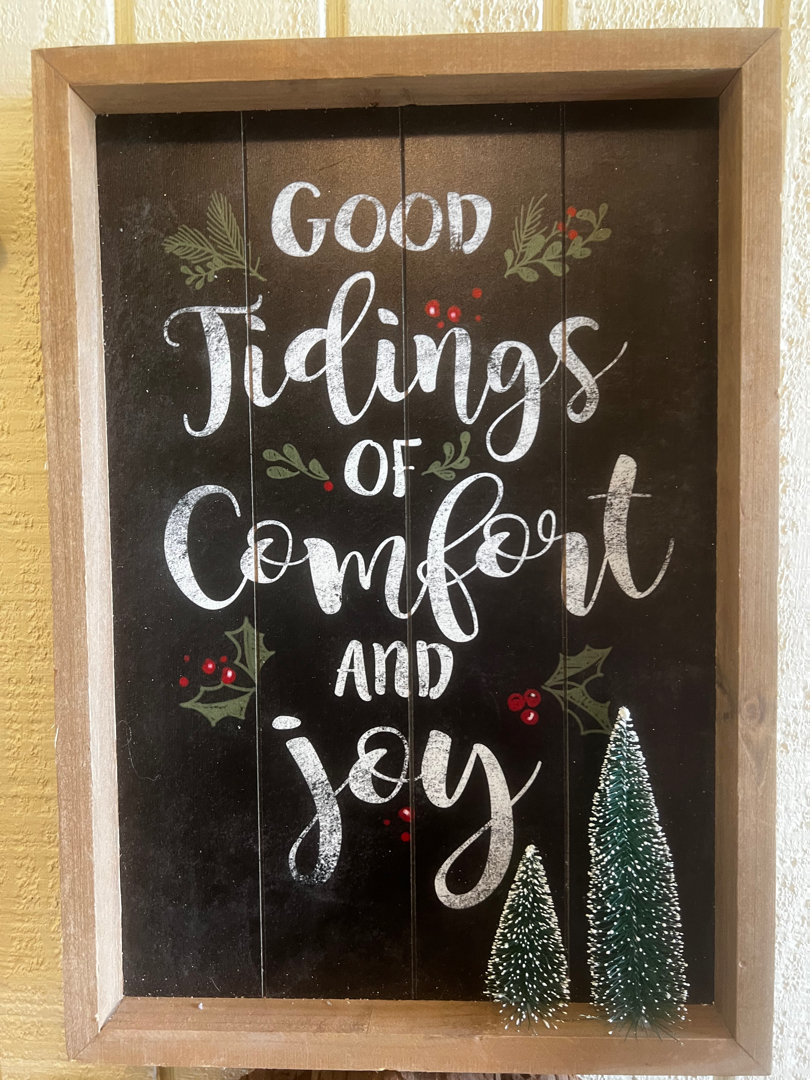 GOOD
Tidings
OF
Comfort
AND
joy